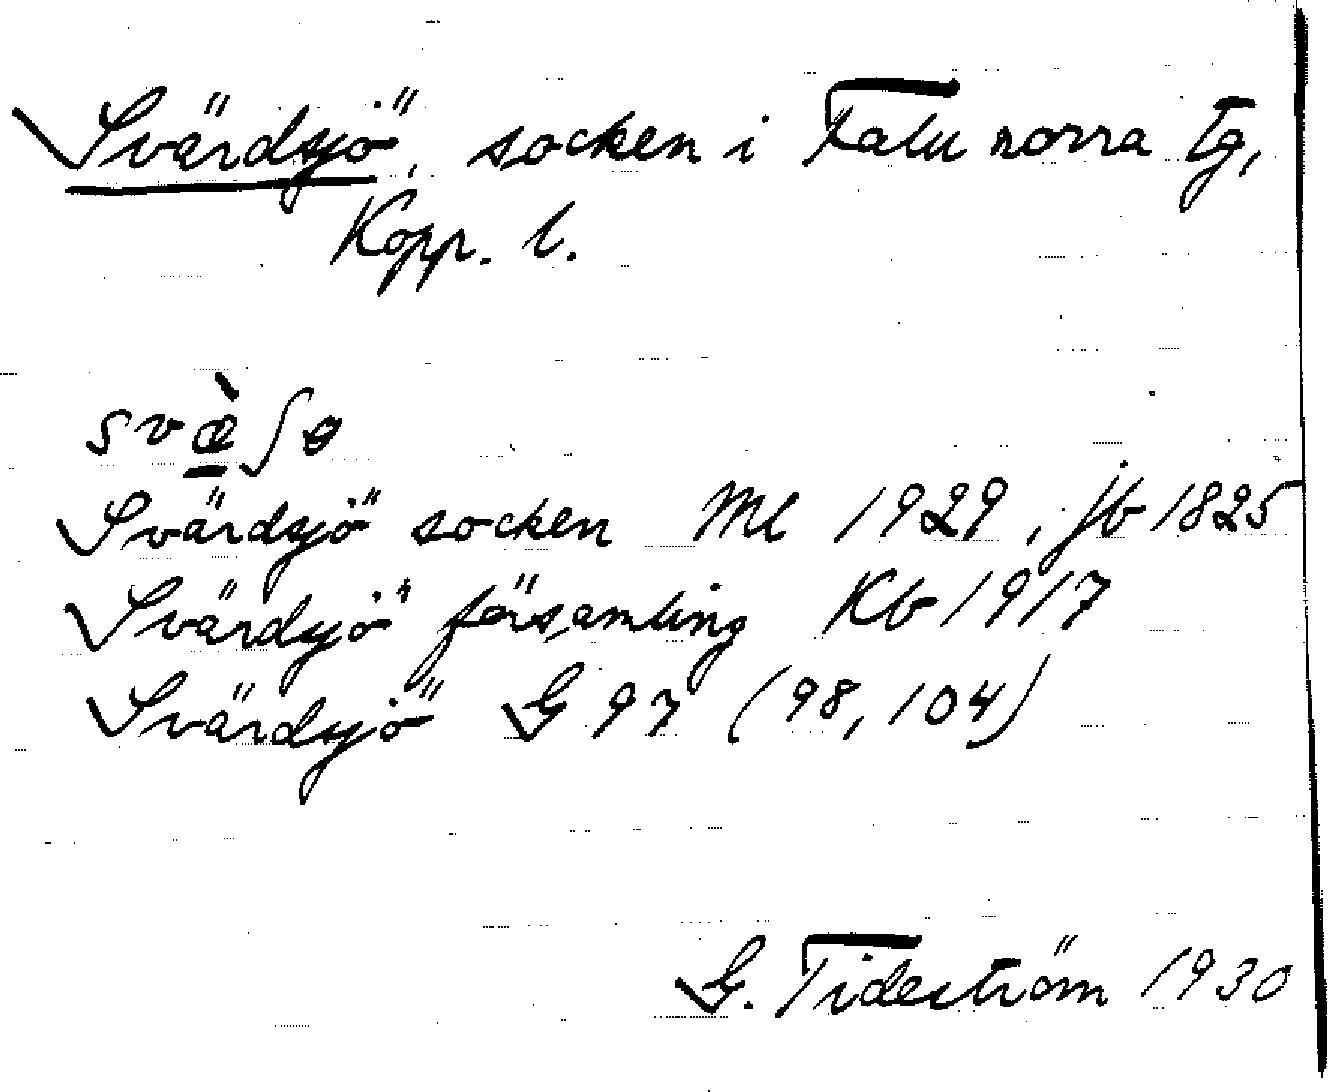 Svärdsjö, socken i Falu norra tg,
Kopp. l.
svæ̀ʃɵ
Svärdsjö socken Ml 1929, jb 1825
Svärdsjö församling Kb 1917
Svärdsjö G 97 (98, 104)
G. Tideström 1930